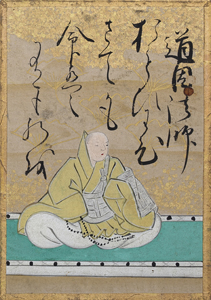 道因法師
おもひわひ
さても
命は
ものを